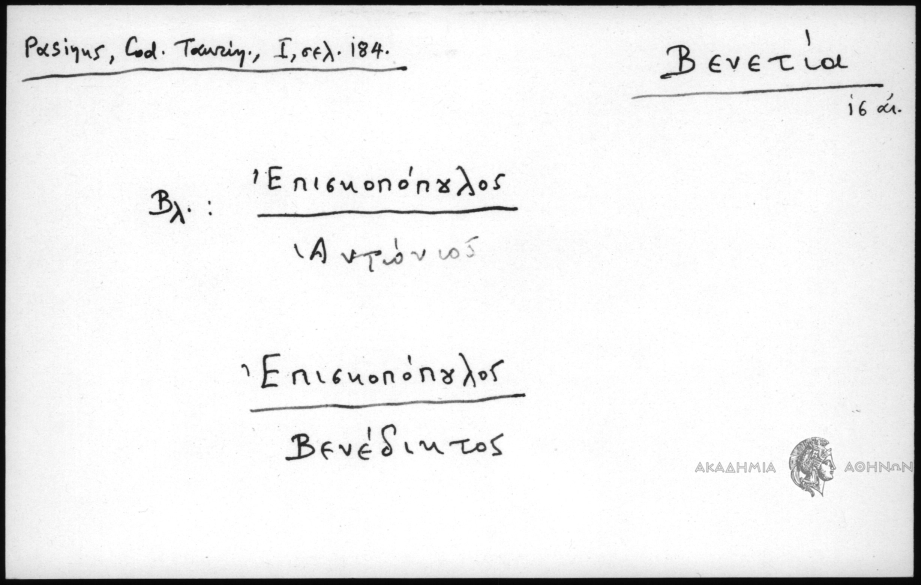 Pasinus, Cod. Taurin., I, σελ. 184.
Βενετία
16 αἰ.
Βλ. : Ἐπισκοπόπȣλος
Ἀντώνιος
Ἐπισκοπόπȣλος
Βενέδικτος
ΑΚΑΔΗΜΙΑ ΑΘΗΝΩΝ